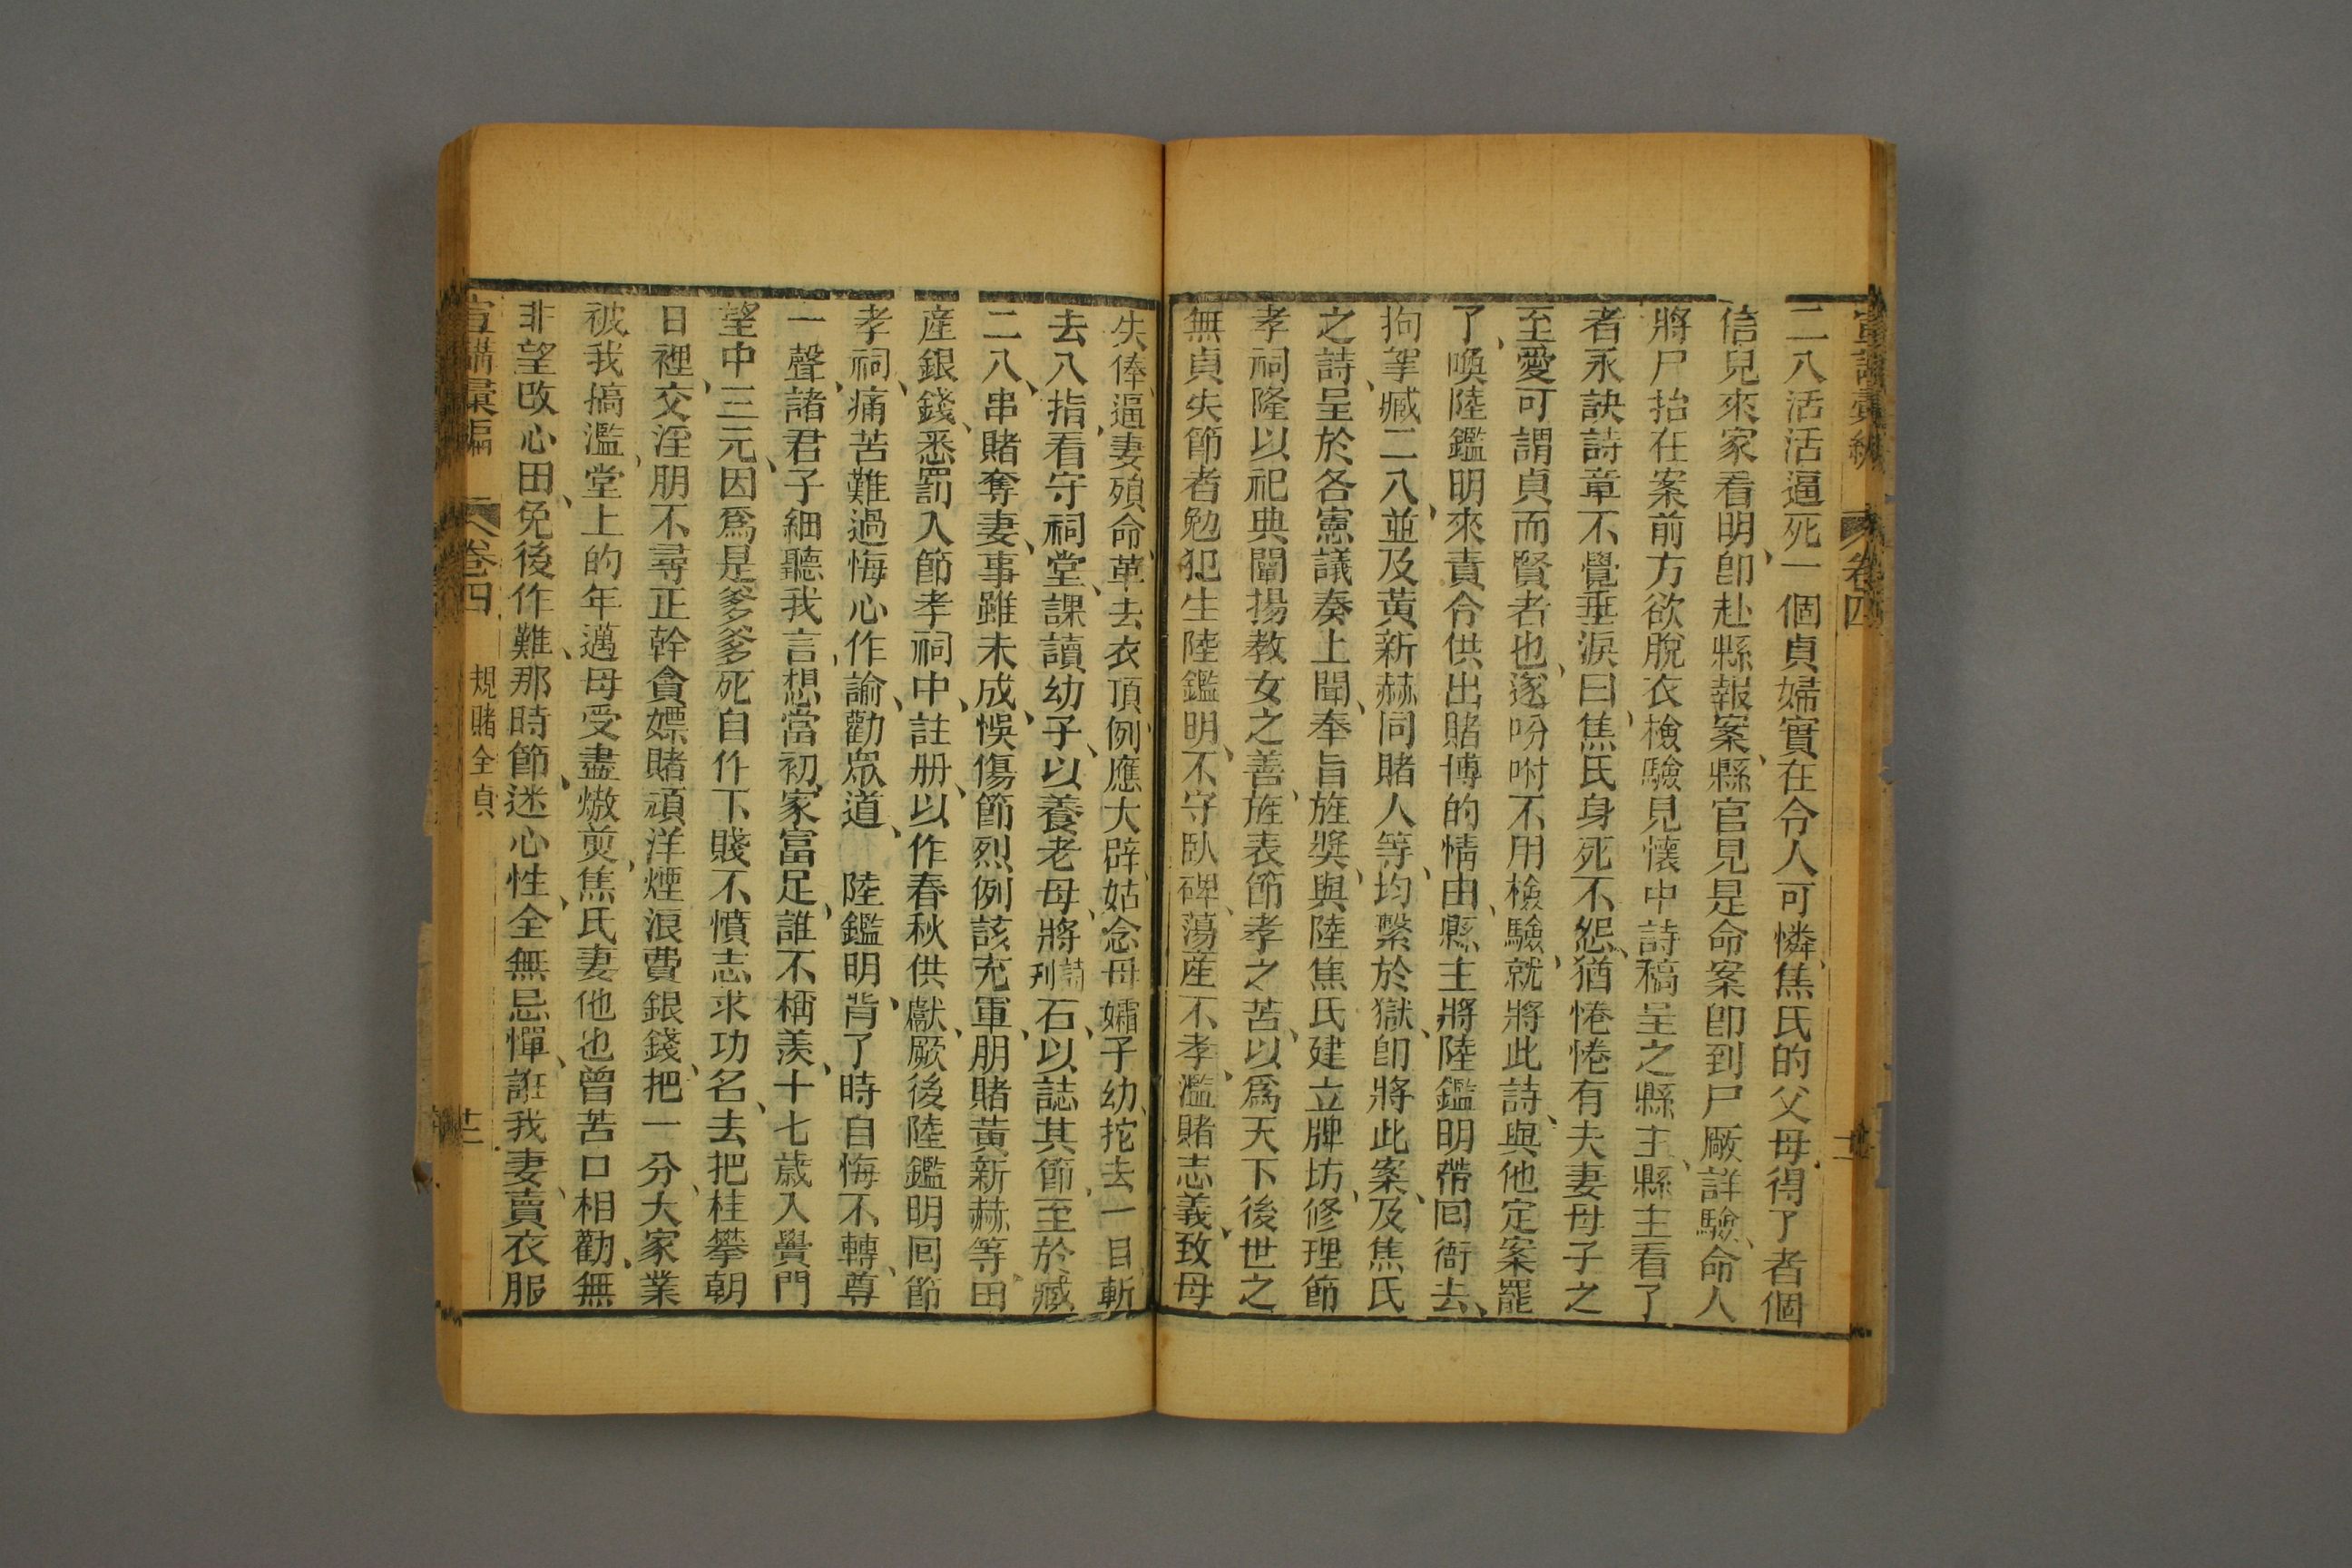 宣講彙編 卷四
二八活活逼死一個貞婦實在令人可憐焦氏的父母得了者個
信兒來家看明、卽赴縣報案、縣官見是命案卽到尸廠詳驗、命人
將尸抬在案前方欲脫衣檢驗見懷中詩稿呈之縣主、縣主看了
者永訣詩章不覺垂淚曰、焦氏身死不怨、猶惓惓有夫妻母子之
至愛可謂貞而賢者也、遂吩咐不用檢驗、就將此詩、與他定案罷
了、喚陸鑑明來責令供出賭博的情由、縣主將陸鑑明帶回衙去、
拘拏臧二八、並及黃新赫同賭人等、均繫於獄、卽將此案、及焦氏
之詩、呈於各憲議奏上聞、奉旨旌獎、與陸焦氏建立牌坊、修理節
孝祠隆以祀典闡揚教女之善、旌表節孝之苦、以爲天下後世之
無貞失節者勉犯生陸鑑明、不守臥碑、蕩産不孝、濫賭志義、致母
失俸、逼妻殞命、革去衣頂、例應大辟、姑念母孀子幼、挖去一目斬
去八指、看守祠堂、課讀幼子、以養老母、將詩刋石、以誌其節、至於臧
二八、串賭奪妻、事雖未成、悞傷節烈例該充軍、朋賭黃新赫等、田
産銀錢、悉罰入節孝祠中、註册、以作春秋供獻、厥後陸鑑明回節
孝祠、痛苦難過悔心作諭、勸眾道、 陸鑑明、背了時自悔不轉、尊
一聲、諸君子細聽我言、想當初、家富足、誰不稱羨、十七歲入黌門
望中三元、因爲是爹爹死自作下賤不憤志求功名、去把桂攀朝
日裡、交淫朋不尋正幹貪嫖賭頑洋煙浪費銀錢、把一分、大家業
被我搞濫、堂上的年邁母受盡熬煎、焦氏妻他也曾苦口相勸、無
非望改心田、免後作難、那時節、迷心性、全無忌憚、誑我妻、賣衣服
宣講彙編 卷四 規賭全貞 廿二